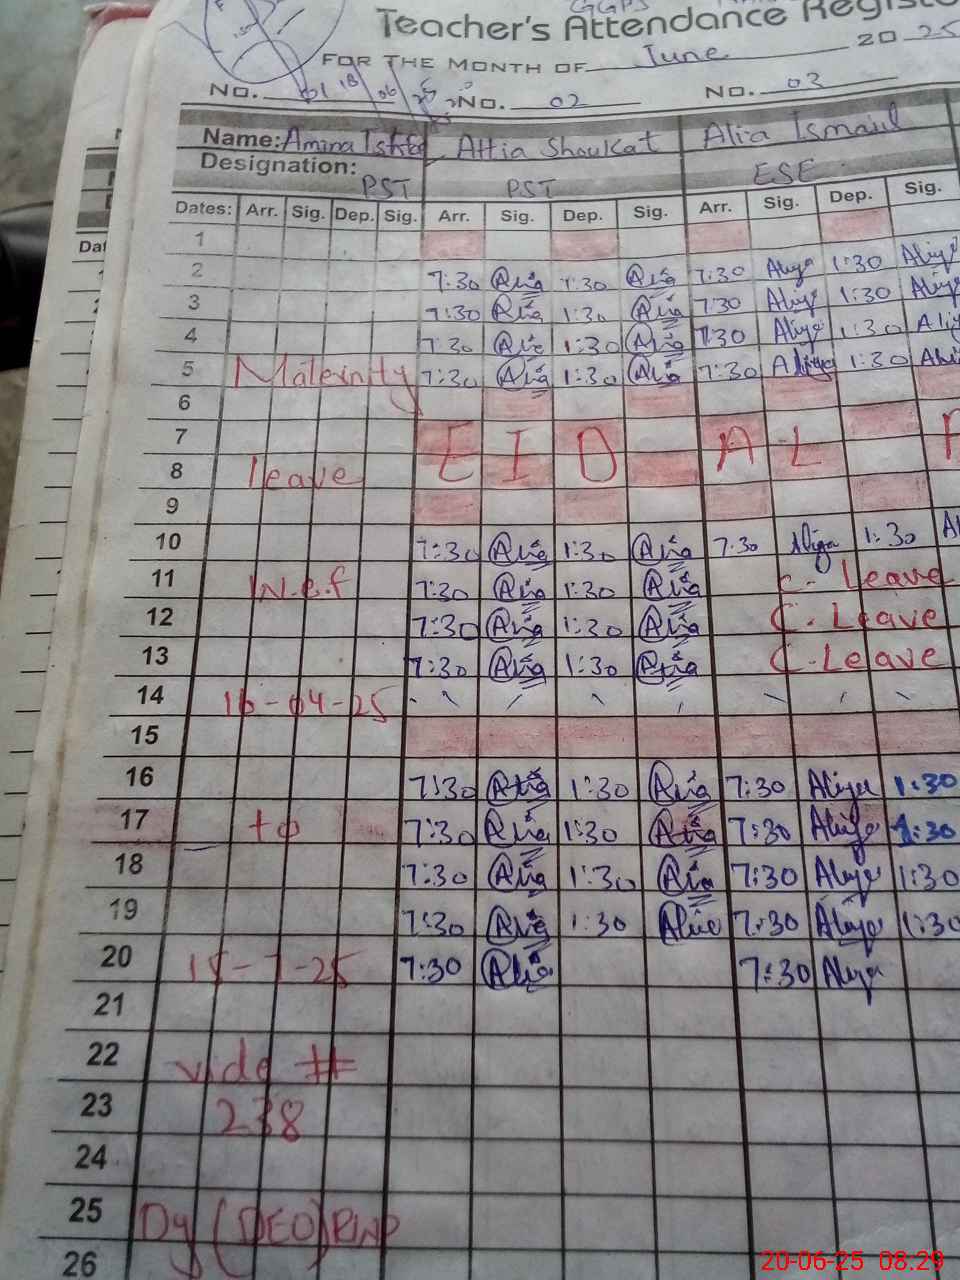 Teacher's Attendance Register
FOR THE MONTH OF June 2025
NO. 01 NO. 02 NO. 03
Name: Amina Attia Shoukat Alia Ismail
Designation: PST PST ESE
Dates: Arr. Sig. Dep. Sig. Arr. Sig. Dep. Sig. Arr. Sig. Dep. Sig.
1
2 7:30 Attia 1:30 Attia 7:30 Aliya 1:30 Aliya
3 7:30 Attia 1:30 Attia 7:30 Aliya 1:30 Aliya
4 7:30 Attia 1:30 Attia 7:30 Aliya 1:30 Aliya
5 Maternity 7:30 Attia 1:30 Attia 7:30 Aliya 1:30
6
7 E I D A L
8 leave
9
10 7:30 Attia 1:30 Attia 7:30 Aliya 1:30
11 W.e.f 7:30 Attia 1:30 Attia C. Leave
12 7:30 Attia 1:30 Attia C. Leave
13 7:30 Attia 1:30 Attia C. Leave
14 16-04-25
15
16 7:30 Attia 1:30 Attia 7:30 Aliya 1:30
17 to 7:30 Attia 1:30 Attia 7:30 Aliya 1:30
18 7:30 Attia 1:30 Attia 7:30 Aliya 1:30
19 7:30 Attia 1:30 Attia 7:30 Aliya 1:30
20 15-7-25 7:30 Attia 7:30 Aliya
21
22 vide #
23 238
24
25 Dy (DEO) RWP
26
20-06-25 08:29